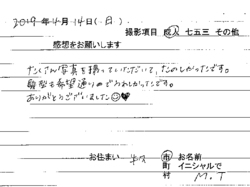 2019年4月14日(日)
撮影項目 成人 七五三 その他
感想をお願いします
たくさん写真を撮っていただいて、たのしかったです。
髪型も希望通りのでうれしかったです。
ありがとうございました☺♥
お住まい 市 お名前
町 イニシャルで
村 M.T